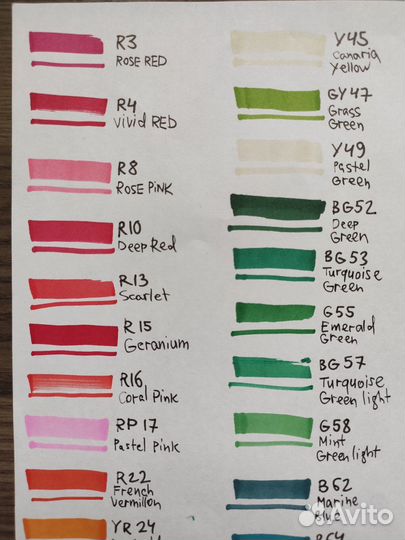 R3
ROSE RED
R4
Vivid RED
R8
ROSE PiNK
R10
Deep Red
R13
Scarlet
R15
Geranium
R16
Coral Pink
RP 17
Pastel Pink
R22
French
Vermillon
YR 24
Y45
Canaria
Yellow
GY 47
Grass
Green
Y49
Pastel
Green
BG52
Deep
Green
BG 53
Turquoise
Green
G55
Emerald
Green
BG 57
Turquoise
Green light
G58
Mint
Green light
B62
Marine
Blue
B64
Avito